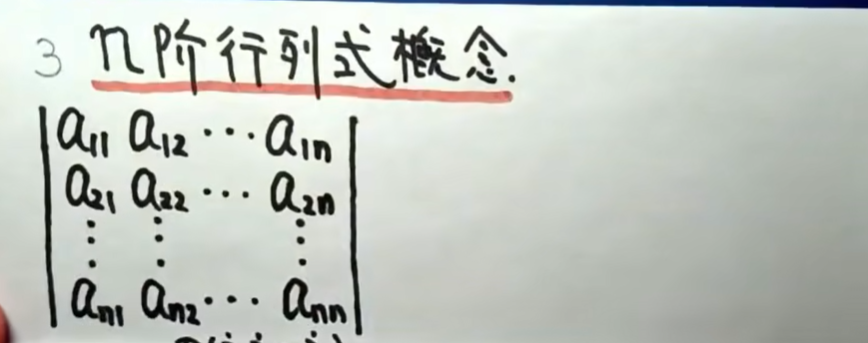 3 n阶行列式概念.
a₁₁ a₁₂ ··· a₁ₙ
a₂₁ a₂₂ ··· a₂ₙ
⋮ ⋮ ⋮
aₙ₁ aₙ₂ ··· aₙₙ